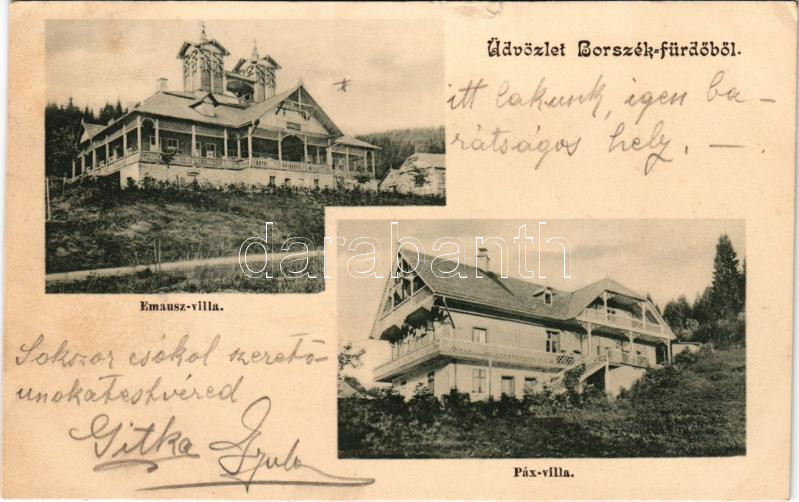 Üdvözlet Borszék-fürdőből.
itt lakunk, igen ba-
rátságos hely. —
Emausz-villa.
darabanth.com
Sokszor csókol szerető
unokatestvéred
Gitka
Gyula
Páx-villa.